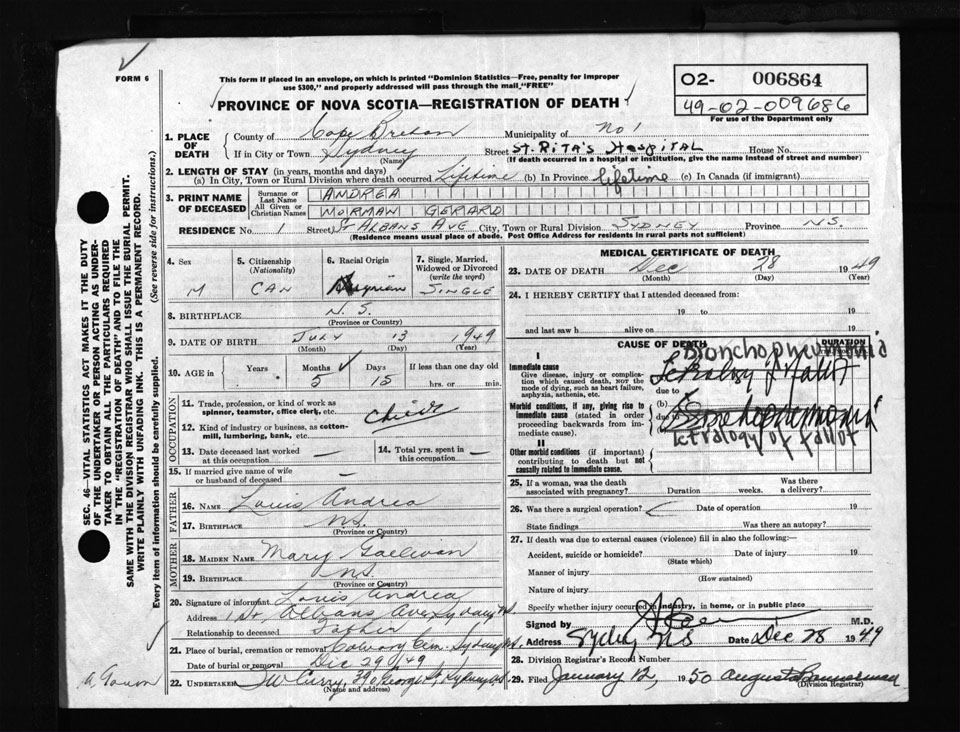 FORM 6
This form if placed in an envelope, on which is printed "Dominion Statistics—Free, penalty for improper
use $300," and properly addressed will pass through the mail "FREE"
PROVINCE OF NOVA SCOTIA—REGISTRATION OF DEATH
02- 006864
49-02-009686
For use of the Department only
SEC. 46—VITAL STATISTICS ACT MAKES IT THE DUTY
OF THE UNDERTAKER OR PERSON ACTING AS UNDER-
TAKER TO OBTAIN ALL THE PARTICULARS REQUIRED
IN THE "REGISTRATION OF DEATH" AND TO FILE THE
SAME WITH THE DIVISION REGISTRAR WHO SHALL ISSUE THE BURIAL PERMIT.
WRITE PLAINLY WITH UNFADING INK. THIS IS A PERMANENT RECORD.
Every item of information should be carefully supplied. (See reverse side for instructions.)
1. PLACE OF DEATH
County of Cape Breton Municipality of No 1
If in City or Town Sydney Street ST. RITA'S HOSPITAL House No.
(Name) (If death occurred in a hospital or institution, give the name instead of street and number)
2. LENGTH OF STAY (in years, months and days)
(a) In City, Town or Rural Division where death occurred Lifetime (b) In Province lifetime (c) In Canada (if immigrant)
3. PRINT NAME OF DECEASED
Surname or Last Name ANDREA
All Given or Christian Names NORMAN GERARD
RESIDENCE No. 1 Street ST ALBANS AVE City, Town or Rural Division SYDNEY Province N.S.
(Residence means usual place of abode. Post Office Address for residents in rural parts not sufficient)
4. Sex M
5. Citizenship (Nationality) CAN
6. Racial Origin Syrian
7. Single, Married, Widowed or Divorced (write the word) SINGLE
8. BIRTHPLACE N. S.
(Province or Country)
9. DATE OF BIRTH JULY 13 1949
(Month) (Day) (Year)
10. AGE in Years Months 5 Days 15 If less than one day old hrs. or min.
OCCUPATION
11. Trade, profession, or kind of work as spinner, teamster, office clerk, etc. Child
12. Kind of industry or business, as cotton-mill, lumbering, bank, etc.
13. Date deceased last worked at this occupation —
14. Total yrs. spent in this occupation —
15. If married give name of wife or husband of deceased —
FATHER
16. NAME Louis Andrea
17. BIRTHPLACE N.S.
(Province or Country)
MOTHER
18. MAIDEN NAME Mary
19. BIRTHPLACE N.S.
(Province or Country)
20. Signature of informant Louis Andrea
Address 1 St. Albans Ave Sydney N.S.
Relationship to deceased Father
21. Place of burial, cremation or removal Calvary Cem. Sydney N.S.
Date of burial or removal Dec 29 0/49
22. UNDERTAKER J W Curry, 390 George St, Sydney N.S.
(Name and address)
MEDICAL CERTIFICATE OF DEATH
23. DATE OF DEATH Dec 28 1949
(Month) (Day) (Year)
24. I HEREBY CERTIFY that I attended deceased from:
19 to 19
and last saw h alive on 19
CAUSE OF DEATH DURATION
Bronchopneumonia
I
Immediate cause
Give disease, injury or complication which caused death, NOT the mode of dying, such as heart failure, asphyxia, asthenia, etc.
(a) Tetralogy of Fallot
due to
Morbid conditions, if any, giving rise to immediate cause (stated in order proceeding backwards from immediate cause).
(b) Bronchopneumonia
due to
tetralogy of fallot
II
Other morbid conditions (if important) contributing to death but not causally related to immediate cause.
25. If a woman, was the death associated with pregnancy? Duration weeks. Was there a delivery?
26. Was there a surgical operation? Date of operation 19
State findings Was there an autopsy?
27. If death was due to external causes (violence) fill in also the following:—
Accident, suicide or homicide? Date of injury 19
(State which)
Manner of injury
(How sustained)
Nature of injury
Specify whether injury occurred in industry, in home, or in public place
Signed by M.D.
Address Sydney NS Date Dec 28 1949
28. Division Registrar's Record Number
29. Filed January 12, 1950
(Division Registrar)